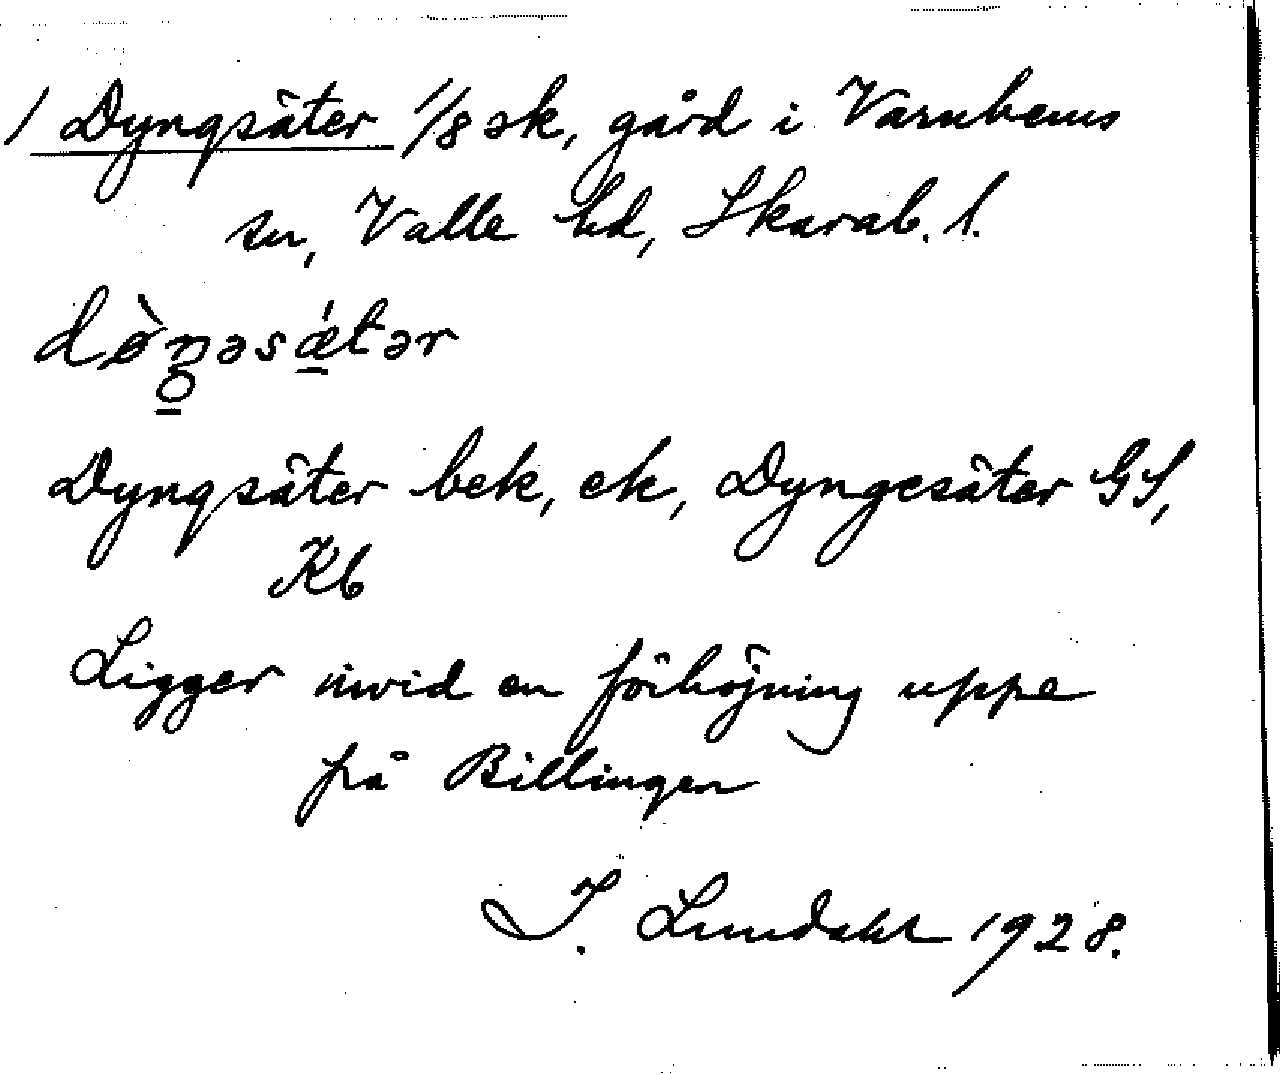 1 Dyngsäter 1/8 sk, gård i Varnhems
sn, Valle hd, Skarab. l.
dø̀ŋəsǽtər
Dyngsäter bek, ek, Dyngesäter GS,
Kb
Ligger invid en förhöjning uppe
på Billingen
I. Lundahl 1928.